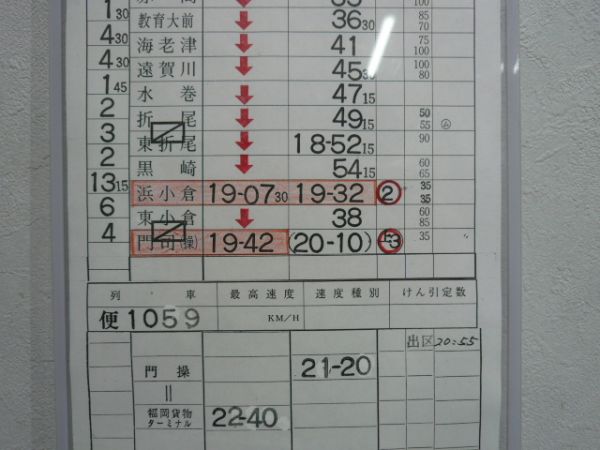 1 30 教育大前 36 30 85 70
4 30 海老津 41 75 100
4 30 遠賀川 45 30 100 80
1 45 水巻 47 15
2 折尾 49 15 50 55
3 東折尾 18-52 15 90
2 黒崎 54 15 60 65
13 15 浜小倉 19-07 30 19-32 ② 35 35
6 東小倉 38 60 85
4 門司(操) 19-42 (20-10) 35
列車 最高速度 速度種別 けん引定数
便1059 KM/H
出区 20:55
門操 21-20
||
福岡貨物
ターミナル 22-40